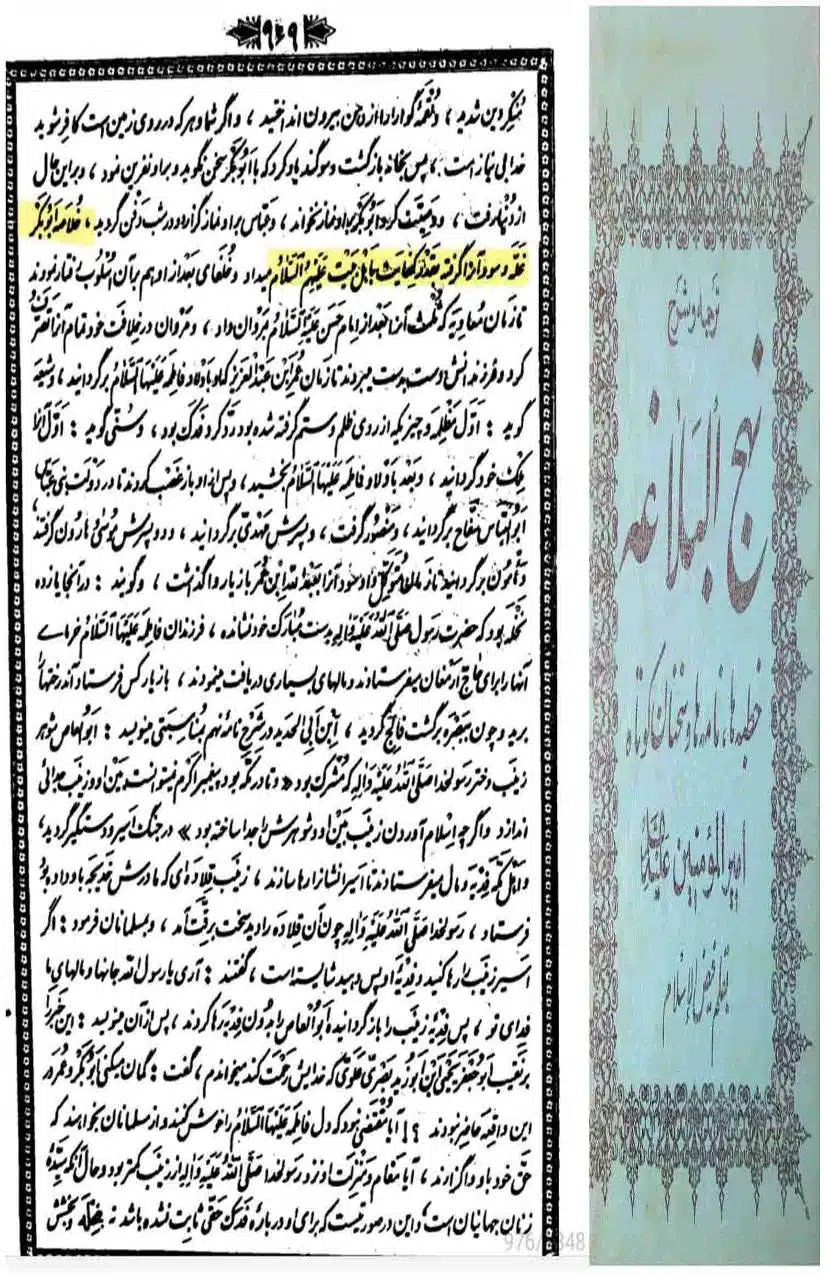 ۹۶۹
منکر دین شدید، و لقمۀ گوارا را از دهن بیرون انداختید، و اگر شما و هر که در روی زمین است کافر شوید
خدا بی نیاز است، پس بخانه بازگشت و سوگند یاد کرد که با ابوبکر سخن نگوید و بر او نفرین نمود، و بر این حال
از دنیا رفت، و وصیت کرد ابوبکر بر او نماز نخواند، و عباس بر او نماز گزارد و در شب دفن گردید، خلاصه ابوبکر
غله و سود آنرا گرفته بقدر کفایت باهل بیت علیهم السلام میداد و خلفای بعد از او هم بر آن اسلوب رفتار نمودند
تا زمان معاویه که ثلث آنرا بعد از امام حسن علیه السلام بمروان داد، و مروان در خلافت خود تمام آنرا تصرف
کرد و فرزندانش دست بدست میبردند تا زمان عمر ابن عبدالعزیز که او باولاد فاطمه علیها السلام برگردانید، و شیعه
گوید: اول مظلمه و چیزیکه از روی ظلم و ستم گرفته شده بود رد کرد فدک بود، و سنی گوید: اول آنرا
ملک خود گردانید، و بعد باولاد فاطمه علیها السلام بخشید، و پس از او باز غصب کردند تا در دولت بنی عباس
ابوالعباس سفاح برگردانید، و منصور گرفت، و پسرش مهدی برگردانید، و دو پسرش موسی و هارون گرفتند
و مأمون برگردانید تا زمان متوکل و او خود آنرا بعبدالله ابن عمر بازیار واگذاشت، و گویند: در آنجا یازده
نخله بود که حضرت رسول صلی الله علیه و اله بدست مبارک خود نشانده، فرزندان فاطمه علیها السلام خرمای
آنها را برای حاج ارمغان میفرستادند و مالهای بسیاری دریافت مینمودند، بازیار کس فرستاد آن درختها را
برید و چون ببصره برگشت فالج گردید، ابن ابی الحدید در شرح نامۀ نهم بمناسبتی مینویسد: ابوالعاص شوهر
زینب دختر رسولخدا صلی الله علیه و اله که مشرک بود «و تا در مکه بود پیغمبر اکرم نمیتوانست بین او و زینب جدائی
اندازد و اگر چه اسلام آوردن زینب بین او و شوهرش را جدا ساخته بود» در جنگ اسیر و دستگیر گردید،
و اهل مکه فدیه و مال میفرستادند تا اسیرانشان را رها سازند، زینب قلاده ای که مادرش خدیجه باو داده بود
فرستاد، رسولخدا صلی الله علیه و اله چون آن قلاده را دید سخت برقت آمد، و بمسلمانان فرمود: اگر
اسیر زینب را رها کنید و فدیۀ او پس دهید شایسته است، گفتند: آری یا رسول الله جانها و مالهای ما
فدای تو، پس فدیۀ زینب را باز گردانیده ابوالعاص را بدون فدیه رها کردند، پس از آن مینویسد: این خبر را
بر نقیب ابوجعفر یحیی ابن ابوزید بصری علوی که خدایش رحمت کند میخواندم، گفت: گمان میکنی ابوبکر و عمر در
این واقعه حاضر نبودند؟! آیا مقتضی نبود که دل فاطمه علیها السلام را خوش کنند و از مسلمانان بخواهند که
حق خود باو واگزارند، آیا مقام و منزلت او نزد رسولخدا صلی الله علیه و اله از زینب کمتر بود و حال آنکه سیدۀ
زنان جهانیان است، و این در صورتیست که برای او دربارۀ فدک حقی ثابت نشده باشد نه بنحله و بخشش
ترجمه و شرح
نهج البلاغه
خطبه ها، نامه ها و سخنان کوتاه
امیر المؤمنین علیه السلام
بقلم فیض الاسلام